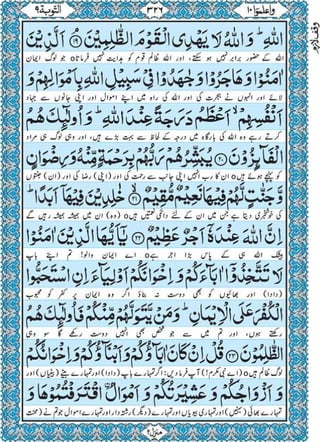 واعلموا ١٠
٣٢٦
التوبة ٩
اللهِ ؕ وَ اللّٰهُ لَا یَهْدِی الْقَوْمَ الظّٰلِمِیْنَ ﴿۱۹﴾ اَلَّذِیْنَ
اللہ کے حضور برابر نہیں ہو سکتے، اور اللہ ظالم قوم کو ہدایت نہیں فرماتا o جو لوگ ایمان
اٰمَنُوْا وَ هَاجَرُوْا وَ جٰهَدُوْا فِیْ سَبِیْلِ اللّٰهِ بِاَمْوَالِهِمْ وَ
لائے اور انہوں نے ہجرت کی اور اللہ کی راہ میں اپنے اموال اور اپنی جانوں سے جہاد
اَنْفُسِهِمْ ۙ اَعْظَمُ دَرَجَةً عِنْدَ اللّٰهِ ؕ وَ اُولٰٓىِٕكَ هُمُ
کرتے رہے وہ اللہ کی بارگاہ میں درجہ کے لحاظ سے بہت بڑے ہیں، اور وہی لوگ ہی مراد
الْفَآىِٕزُوْنَ ﴿۲۰﴾ یُبَشِّرُهُمْ رَبُّهُمْ بِرَحْمَةٍ مِّنْهُ وَ رِضْوَانٍ
کو پہنچے ہوئے ہیں o ان کا رب انہیں اپنی جانب سے رحمت کی اور (اپنی) رضا کی اور (ان) جنتوں
وَّ جَنّٰتٍ لَّهُمْ فِیْهَا نَعِیْمٌ مُّقِیْمٌ ﴿۲۱﴾ خٰلِدِیْنَ فِیْهَاۤ اَبَدًا ؕ
کی خوشخبری دیتا ہے جن میں ان کے لئے دائمی نعمتیں ہیں o (وہ) ان میں ہمیشہ ہمیشہ رہیں گے
اِنَّ اللّٰهَ عِنْدَهٗۤ اَجْرٌ عَظِیْمٌ ﴿۲۲﴾ یٰۤاَیُّهَا الَّذِیْنَ اٰمَنُوْا
بیشک اللہ ہی کے پاس بڑا اجر ہے o اے ایمان والو! تم اپنے باپ
لَا تَتَّخِذُوْۤا اٰبَآءَكُمْ وَ اِخْوَانَكُمْ اَوْلِیَآءَ اِنِ اسْتَحَبُّوا
(دادا) اور بھائیوں کو بھی دوست نہ بناؤ اگر وہ ایمان پر کفر کو محبوب
الْكُفْرَ عَلَی الْاِیْمَانِ ؕ وَ مَنْ یَّتَوَلَّهُمْ مِّنْكُمْ فَاُولٰٓىِٕكَ هُمُ
رکھتے ہوں، اور تم میں سے جو شخص بھی انہیں دوست رکھے گا سو وہی
الظّٰلِمُوْنَ ﴿۲۳﴾ قُلْ اِنْ كَانَ اٰبَآؤُكُمْ وَ اَبْنَآؤُكُمْ وَ اِخْوَانُكُمْ
لوگ ظالم ہیں o (اے نبی مکرم!) آپ فرما دیں: اگر تمہارے باپ (دادا) اور تمہارے بیٹے (بیٹیاں) اور
وَ اَزْوَاجُكُمْ وَ عَشِیْرَتُكُمْ وَ اَمْوَالُ ۨاقْتَرَفْتُمُوْهَا وَ
تمہارے بھائی (بہنیں) اور تمہاری بیویاں اور تمہارے (دیگر) رشتہ دار اور تمہارے اموال جو تم نے (محنت
منزل ٢